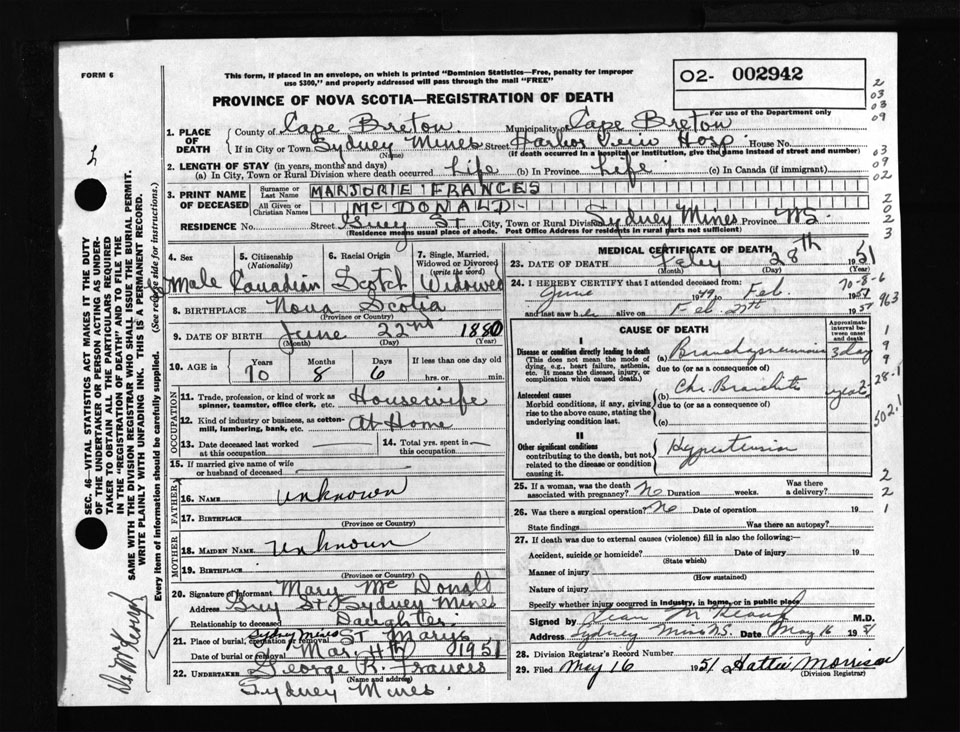 FORM 6
This form, if placed in an envelope, on which is printed "Dominion Statistics—Free, penalty for improper
use $300," and properly addressed will pass through the mail "FREE"
O2- 002942
PROVINCE OF NOVA SCOTIA—REGISTRATION OF DEATH
For use of the Department only
1. PLACE OF DEATH
County of Cape Breton Municipality of Cape Breton
If in City or Town Sydney Mines Street Harbor View Hosp House No.
(Name) (If death occurred in a hospital or institution, give the name instead of street and number)
2. LENGTH OF STAY (in years, months and days)
(a) In City, Town or Rural Division where death occurred Life (b) In Province Life (c) In Canada (if immigrant)
3. PRINT NAME OF DECEASED
Surname or Last Name MARJORIE FRANCES
All Given or Christian Names McDONALD
RESIDENCE No. Street St City, Town or Rural Division Sydney Mines Province NS
(Residence means usual place of abode. Post Office Address for residents in rural parts not sufficient)
4. Sex
Female
5. Citizenship (Nationality)
Canadian
6. Racial Origin
Scotch
7. Single, Married, Widowed or Divorced (write the word)
Widowed
8. BIRTHPLACE Nova Scotia
(Province or Country)
9. DATE OF BIRTH June 22nd 1880
(Month) (Day) (Year)
10. AGE in Years Months Days If less than one day old
70 8 6 hrs. or min.
OCCUPATION
11. Trade, profession, or kind of work as spinner, teamster, office clerk, etc. Housewife
12. Kind of industry or business, as cotton-mill, lumbering, bank, etc. At Home
13. Date deceased last worked at this occupation —
14. Total yrs. spent in this occupation —
15. If married give name of wife or husband of deceased
FATHER
16. NAME Unknown
17. BIRTHPLACE
(Province or Country)
MOTHER
18. MAIDEN NAME Unknown
19. BIRTHPLACE
(Province or Country)
20. Signature of informant Mary McDonald
Address St Sydney Mines
Relationship to deceased Daughter
21. Place of burial, cremation or removal Sydney Mines St Marys
Date of burial or removal Mar. 4th 1951
22. UNDERTAKER George R. Frances
(Name and address)
Sydney Mines.
MEDICAL CERTIFICATE OF DEATH
23. DATE OF DEATH Feby 28th 1951
(Month) (Day) (Year)
24. I HEREBY CERTIFY that I attended deceased from:
June 1949 to Feb.
and last saw h alive on Feb. 27th
CAUSE OF DEATH
Approximate interval between onset and death
I
Disease or condition directly leading to death
(This does not mean the mode of dying, e.g., heart failure, asthenia, etc. It means the disease, injury, or complication which caused death.)
(a) Bronchopneumonia 3 day
due to (or as a consequence of)
Antecedent causes
Morbid conditions, if any, giving rise to the above cause, stating the underlying condition last.
(b) Chr. Bronchitis years
due to (or as a consequence of)
(c)
II
Other significant conditions
contributing to the death, but not related to the disease or condition causing it.
Hypertension
25. If a woman, was the death associated with pregnancy? No Duration weeks. Was there a delivery?
26. Was there a surgical operation? No Date of operation 19
State findings Was there an autopsy?
27. If death was due to external causes (violence) fill in also the following:—
Accident, suicide or homicide? Date of injury 19
(State which)
Manner of injury
(How sustained)
Nature of injury
Specify whether injury occurred in industry, in home, or in public place
Signed by M.D.
Address Sydney Mines N.S. Date May 16
28. Division Registrar's Record Number
29. Filed May 16 1951 Hattie Morrison
(Division Registrar)
SEC. 46—VITAL STATISTICS ACT MAKES IT THE DUTY
OF THE UNDERTAKER OR PERSON ACTING AS UNDER-
TAKER TO OBTAIN ALL THE PARTICULARS REQUIRED
IN THE "REGISTRATION OF DEATH" AND TO FILE THE
SAME WITH THE DIVISION REGISTRAR WHO SHALL ISSUE THE BURIAL PERMIT.
WRITE PLAINLY WITH UNFADING INK. THIS IS A PERMANENT RECORD.
Every item of information should be carefully supplied. (See reverse side for instructions.)
2
03
03
09
03
09
02
2
0
2
3
70-8-6
963
1
9
9
2-28-1
502.1
2
2
1